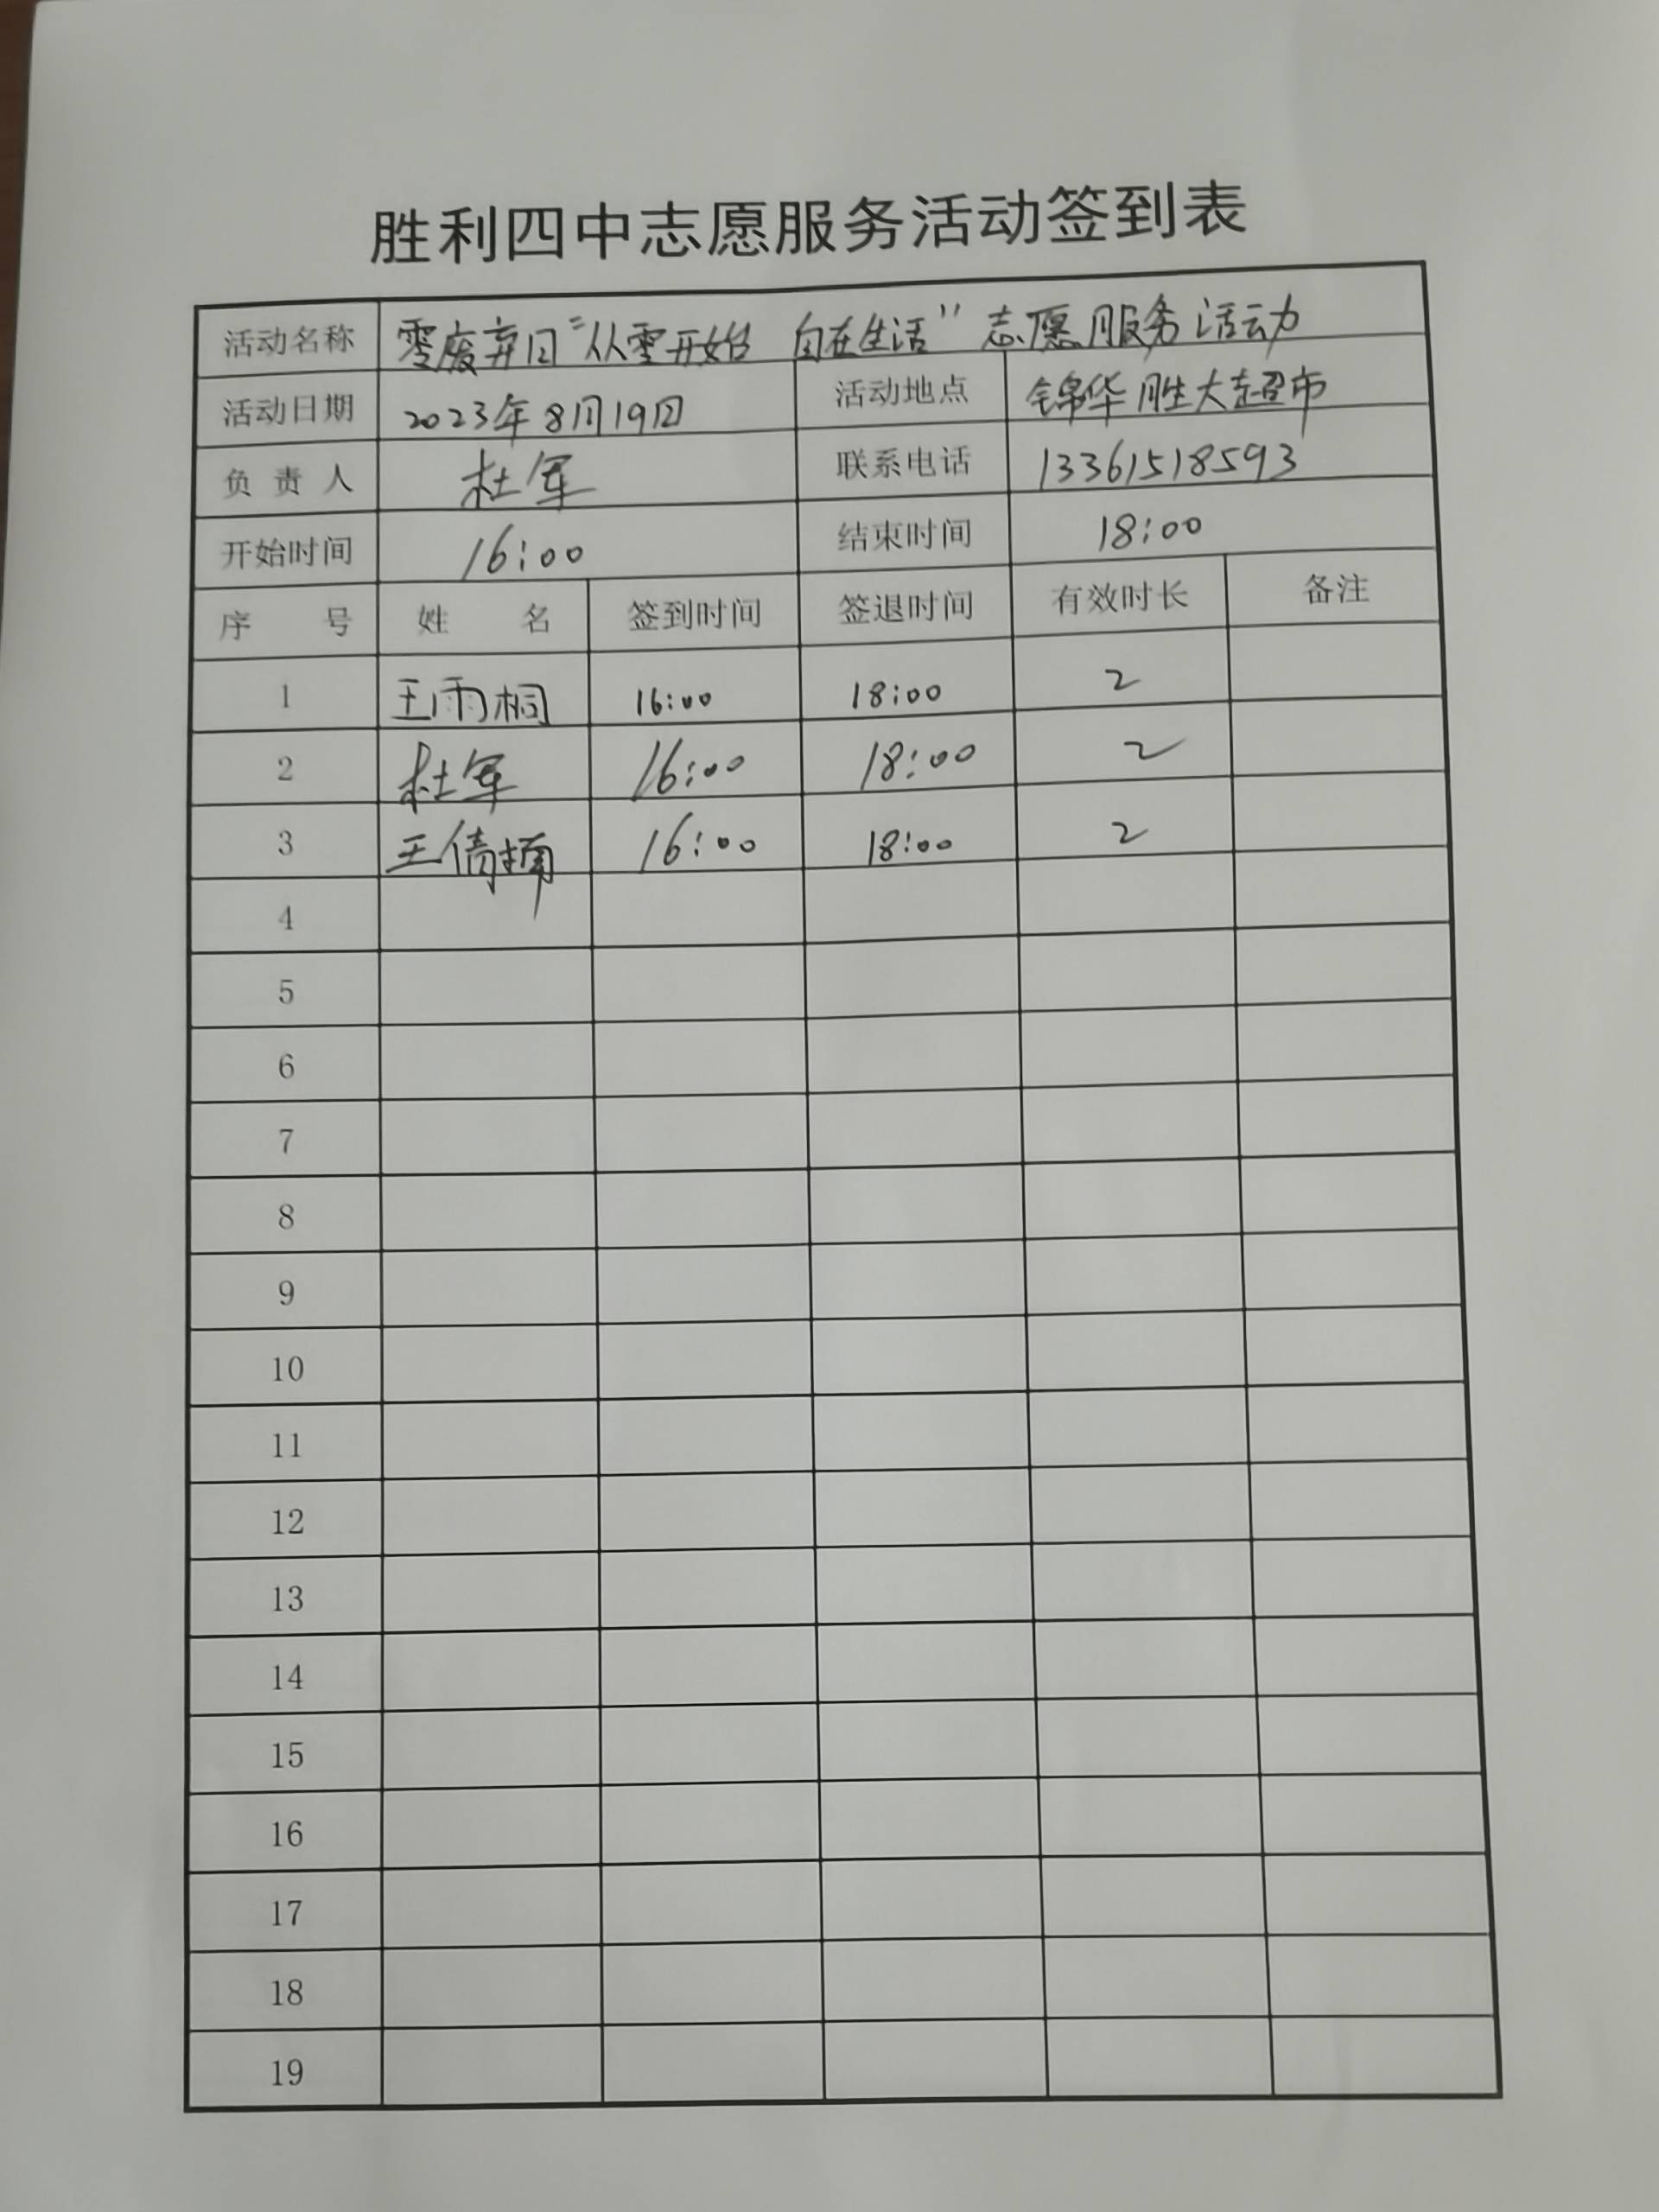 胜利四中志愿服务活动签到表
活动名称 零废弃日“从零开始 自在生活”志愿服务活动
活动日期 2023年8月19日 活动地点 锦华胜大超市
负责人 杜军 联系电话 13361518593
开始时间 16:00 结束时间 18:00
序号 姓名 签到时间 签退时间 有效时长 备注
1 王雨桐 16:00 18:00 2
2 杜军 16:00 18:00 2
3 王倩楠 16:00 18:00 2
4
5
6
7
8
9
10
11
12
13
14
15
16
17
18
19